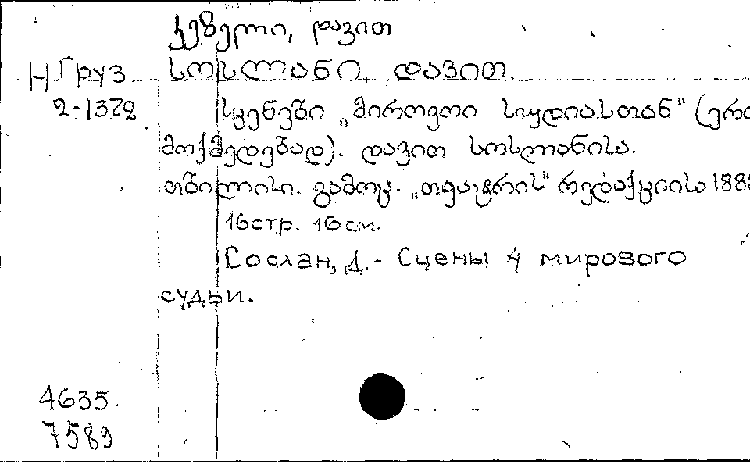 კეზელი, დავით
Н Груз სოსლანი, დავით
2-1372 სცენები „მიროვოი სუდიასთან“ (ერთ
მოქმედებად). დავით სოსლანისა.
თბილისი. გამოც. „თეატრის“ რედაქციისა 188
16 стр. 16 см.
Сослан, Д. - Сцены у мирового
судьи.
4635
7589